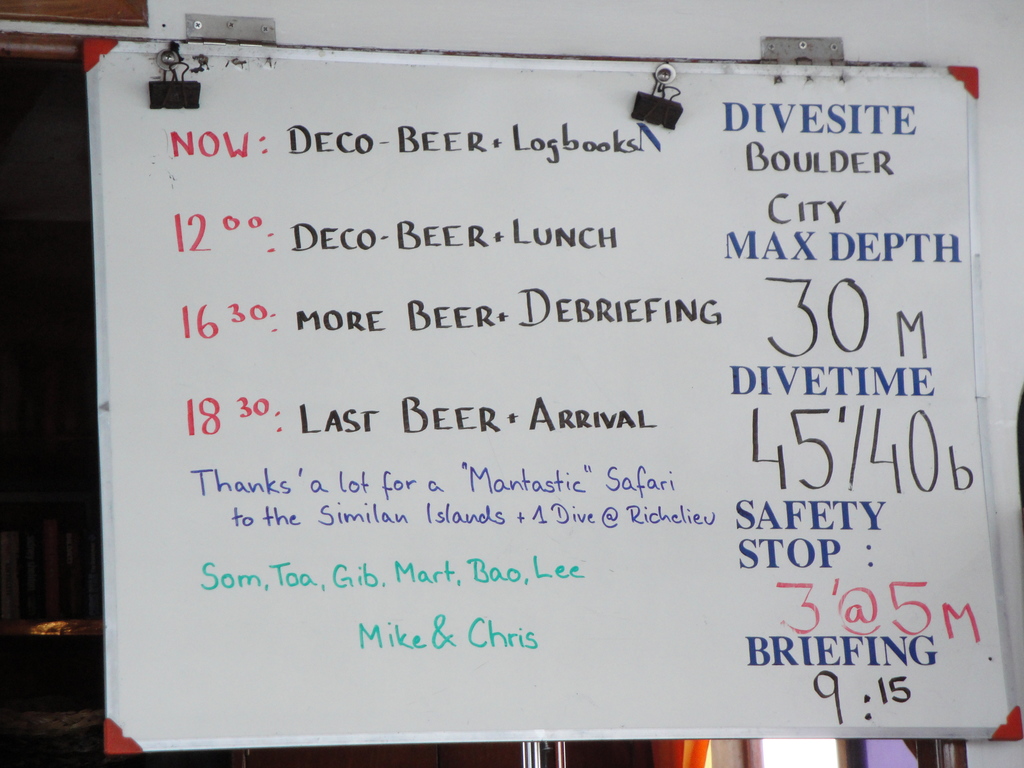 NOW: DECO-BEER + Logbooks N
12 00: DECO-BEER + LUNCH
16 30: MORE BEER + DEBRIEFING
18 30: LAST BEER + ARRIVAL
Thanks 'a lot for a "Mantastic" Safari
to the Similan Islands + 1 Dive @ Richelieu
Som, Toa, Gib, Mart, Bao, Lee
Mike & Chris
DIVESITE
BOULDER
CITY
MAX DEPTH
30 M
DIVETIME
45'/40b
SAFETY
STOP :
3'@5M
BRIEFING
9:15